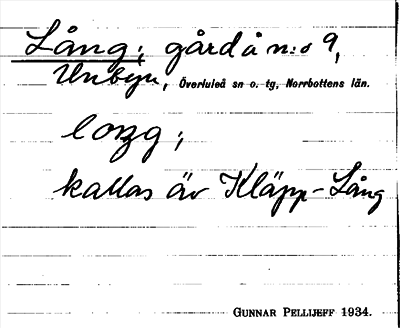 Lång; gård å n:o 9,
Unbyn, Överluleå sn o. tg, Norrbottens län.
kallas äv Kläpp-Lång
GUNNAR PELLIJEFF 1934.